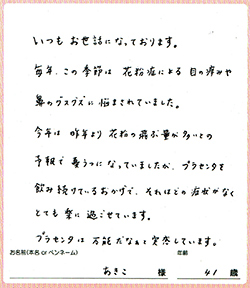 いつもお世話になっております。
毎年、この季節は 花粉症による 目の痒みや
鼻のグズグズに 悩まされていました。
今年は 昨年より 花粉の飛ぶ量が多いとの
予報で 憂うつになっていましたが、プラセンタを
飲み続けているおかげで、それほどの 症状がなく
とても 楽に 過ごせています。
プラセンタは 万能だなぁと 実感しています。
お名前(本名 or ペンネーム) 年齢
あきこ 様 41 歳